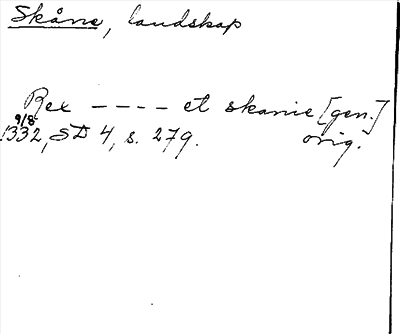 Skåne, landskap
Rex ---- et skanie [gen.]
9/8
1332, SD 4, s. 279. orig.